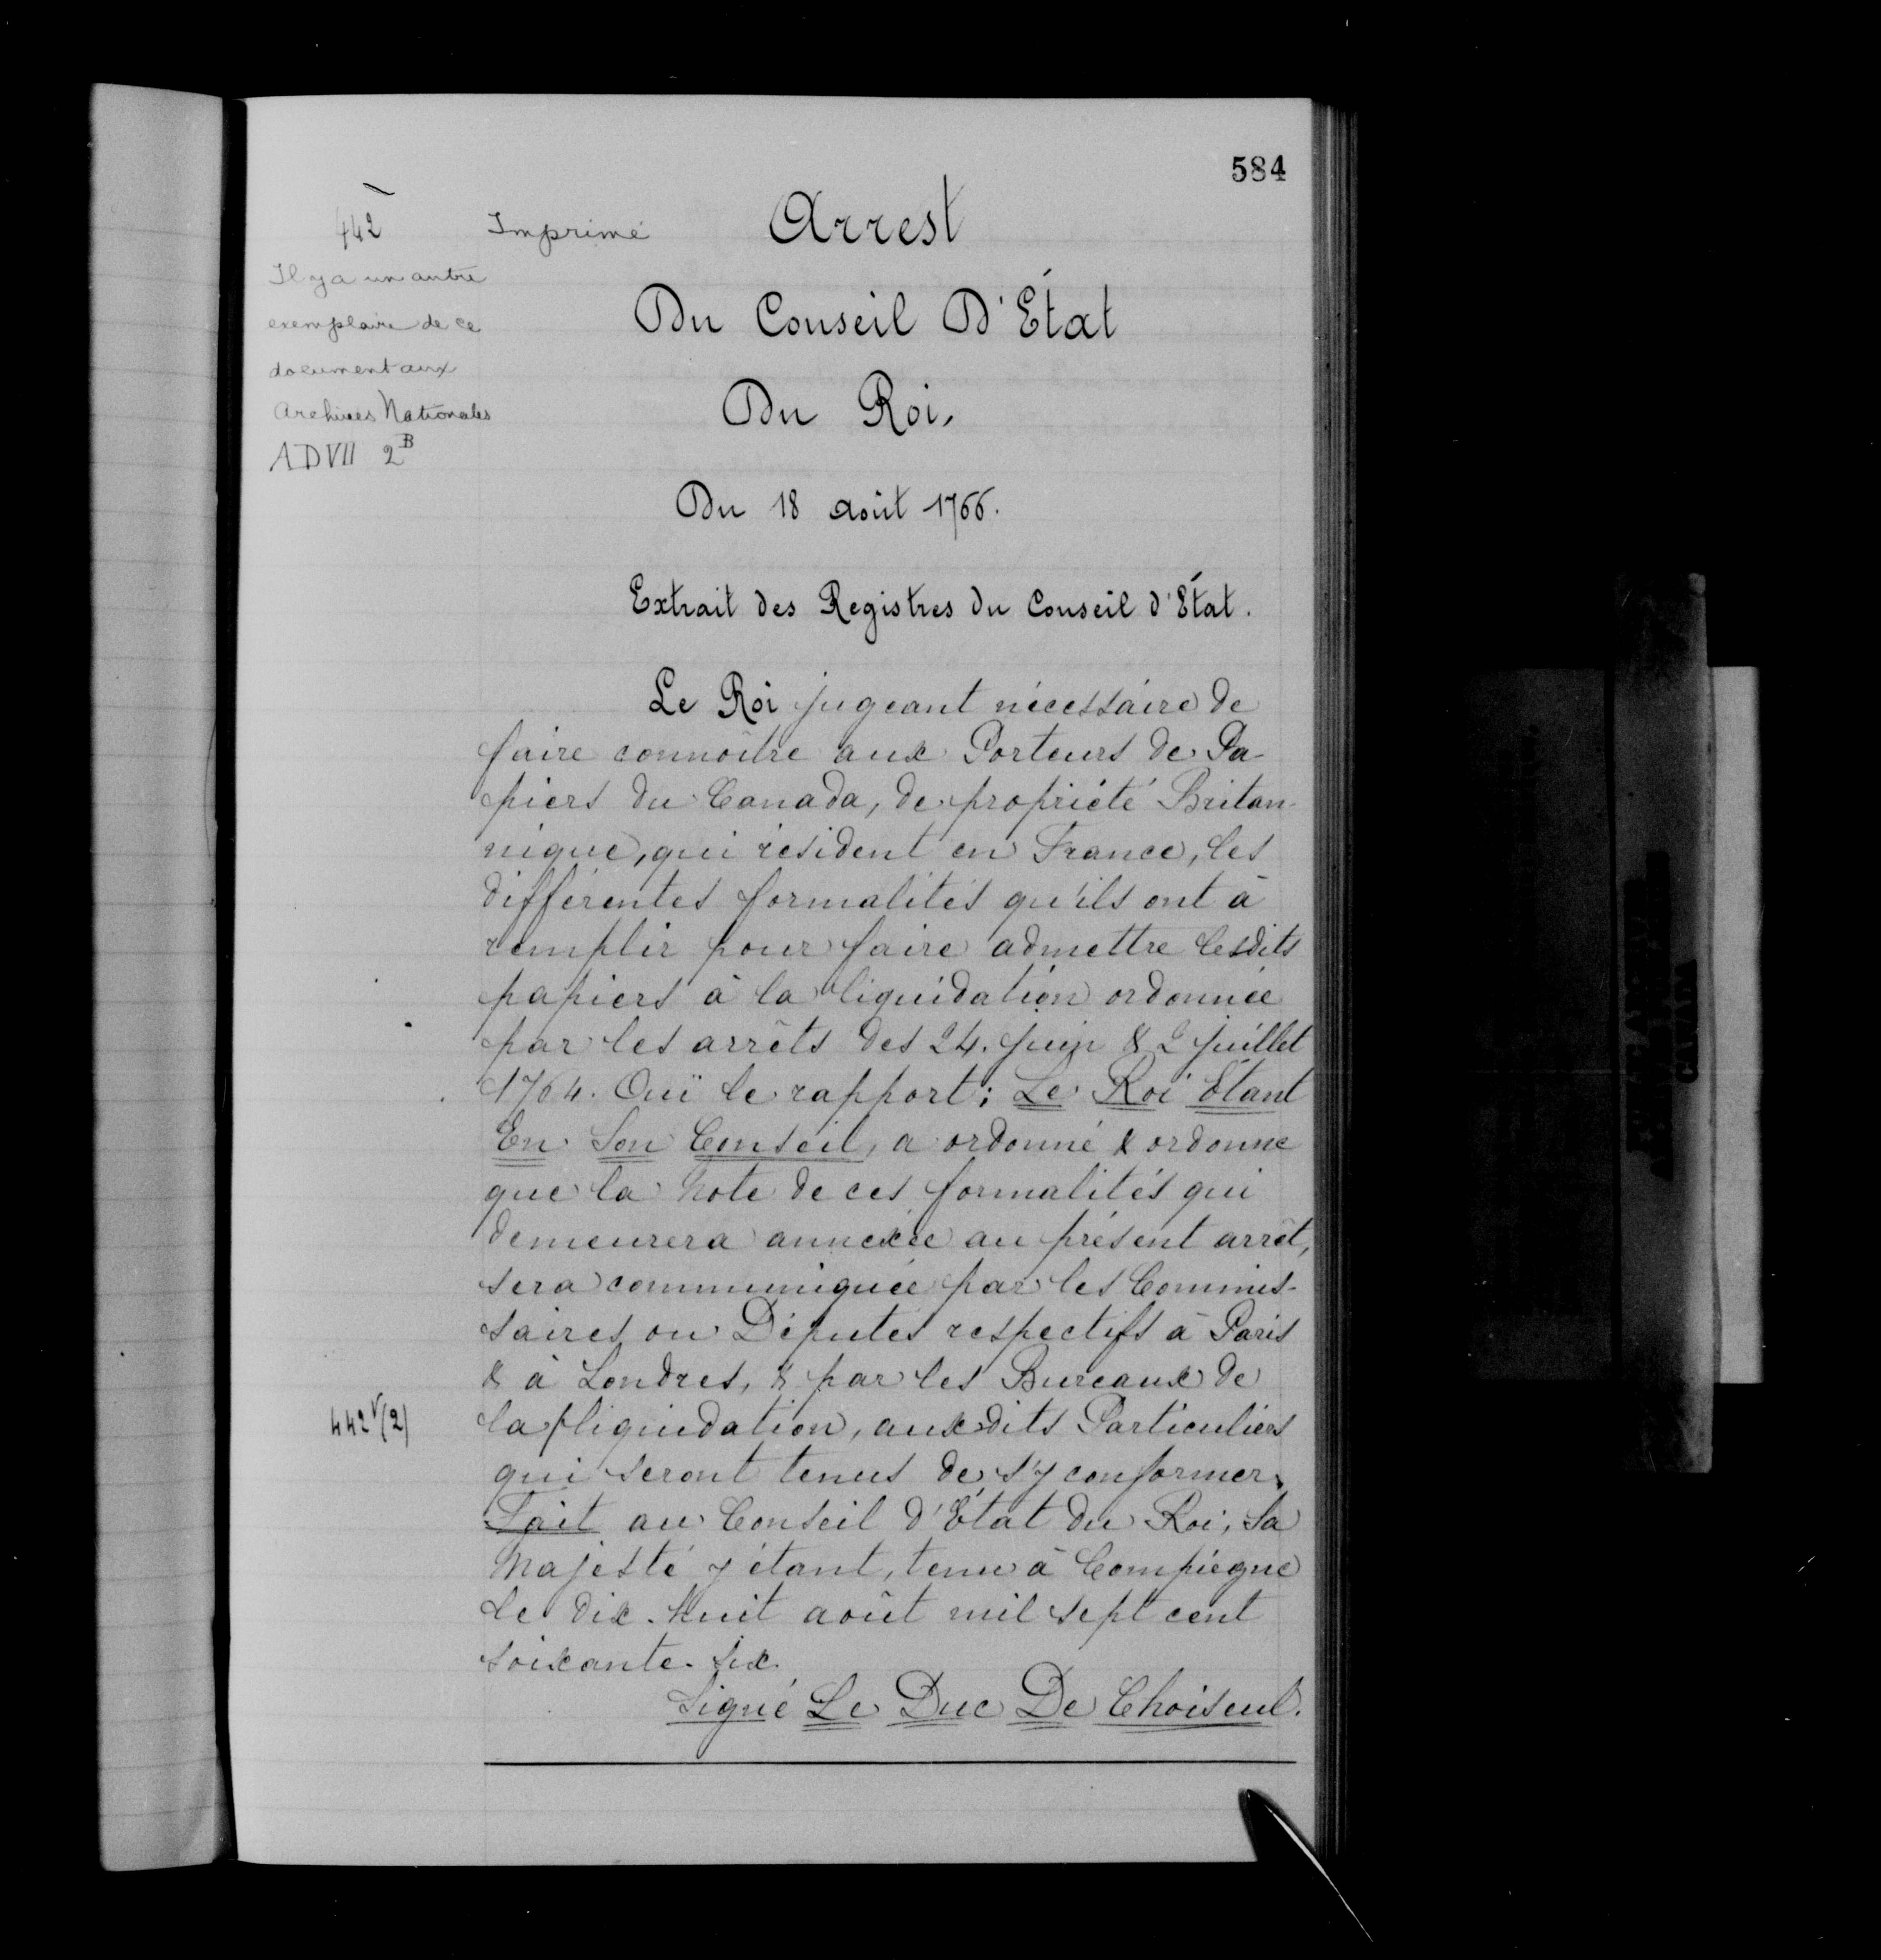 584
442
Imprimé
Arrest
Il y a un autre
exemplaire de ce
document aux
Archives Nationales
AD VII 2B
Du Conseil D'État
Du Roi,
Du 18 août 1766.
Extrait des Registres du Conseil d'État.
Le Roi jugeant nécessaire de
faire connoître aux Porteurs de Pa-
piers du Canada, de propriété Britan-
nique, qui résident en France, les
différentes formalités qu'ils ont à
remplir pour faire admettre lesdits
papiers à la liquidation ordonnée
par les arrêts des 24. juin & 2 juillet
1764. Ouï le rapport; Le Roi Étant
En Son Conseil, a ordonné & ordonne
que la Note de ces formalités qui
demeurera annexée au présent arrêt,
sera communiquée par les Commis-
saires ou Députés respectifs à Paris
& à Londres, & par les Bureaux de
442v(2)
la liquidation, auxdits Particuliers
qui seront tenus de s'y conformer.
Fait au Conseil d'État du Roi, Sa
Majesté y étant, tenu à Compiègne
le dix-huit août mil sept cent
soixante-six.
Signé Le Duc De Choiseul.